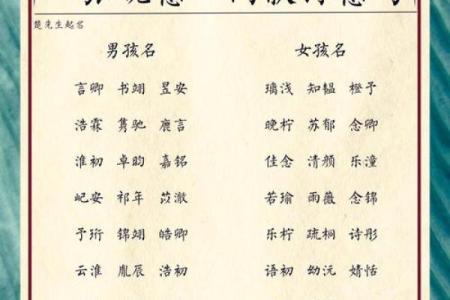 楚先生起名
男孩名 女孩名
言卿 书翊 昱安 璃浅 知韫 橙予
浩霖 隽驰 赓言 晚柠 苏郁 念卿
淮初 卓昀 嘉铭 佳念 清颜 乐潼
屺安 祁年 苡澈 若瑜 雨薇 念锦
予珩 锦翊 皓卿 乐柠 疏桐 诗彤
云淮 胤辰 浩初 语初 幼沅 婧恬